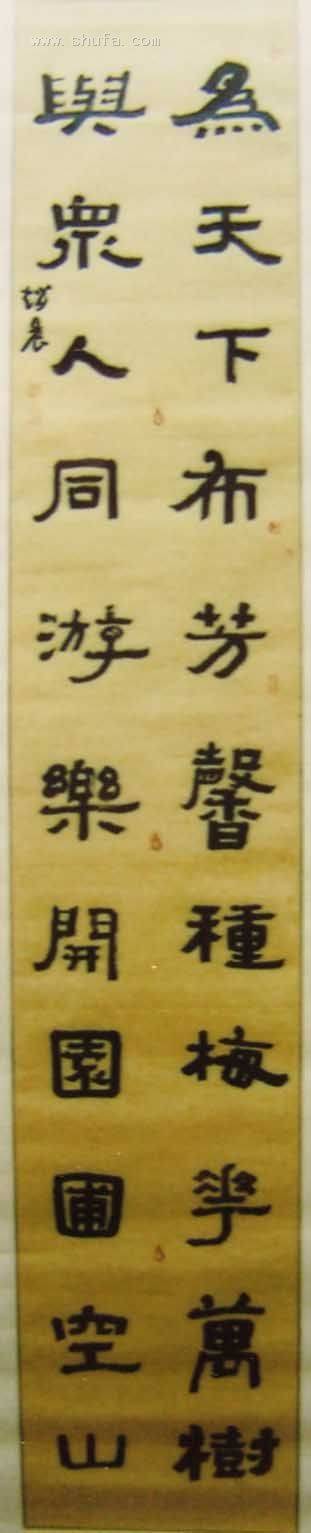 www.shufa.com
為天下布芳馨種梅花萬樹
與眾人同游樂開園圃空山